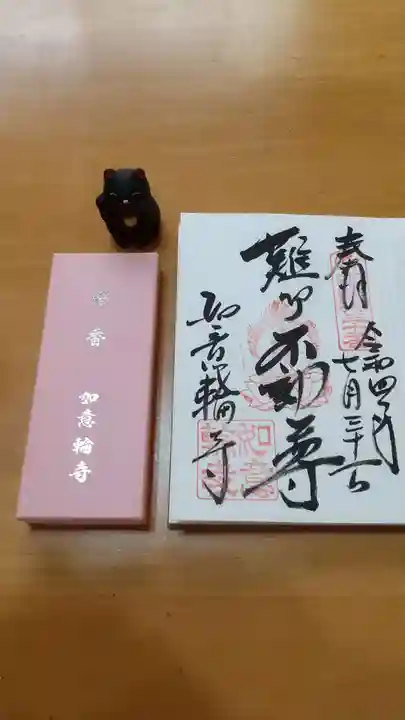 桜香
如意輪寺
奉拝
令和四年
七月三十一日
難切不動尊
如意輪寺